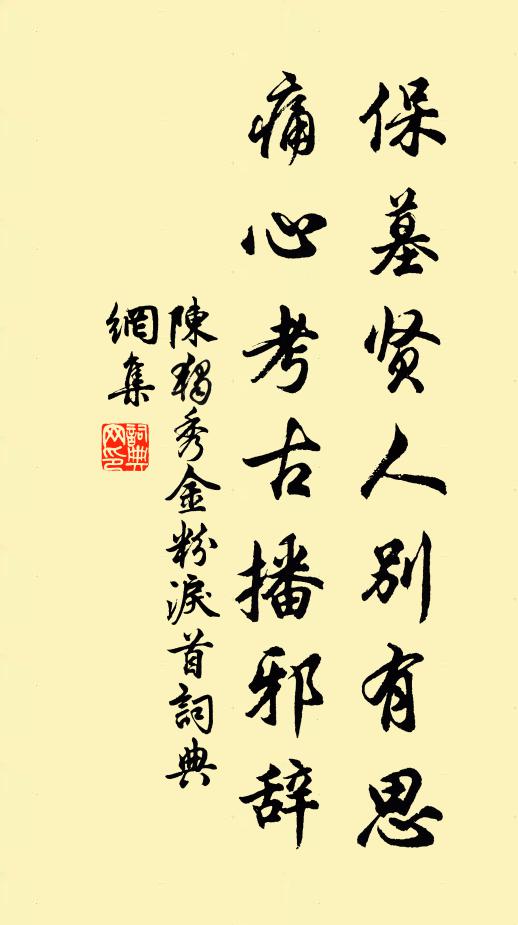 保墓贤人别有思
痛心考古播邪辞
陳獨秀金粉淚首詞典
網集
詞典
网印